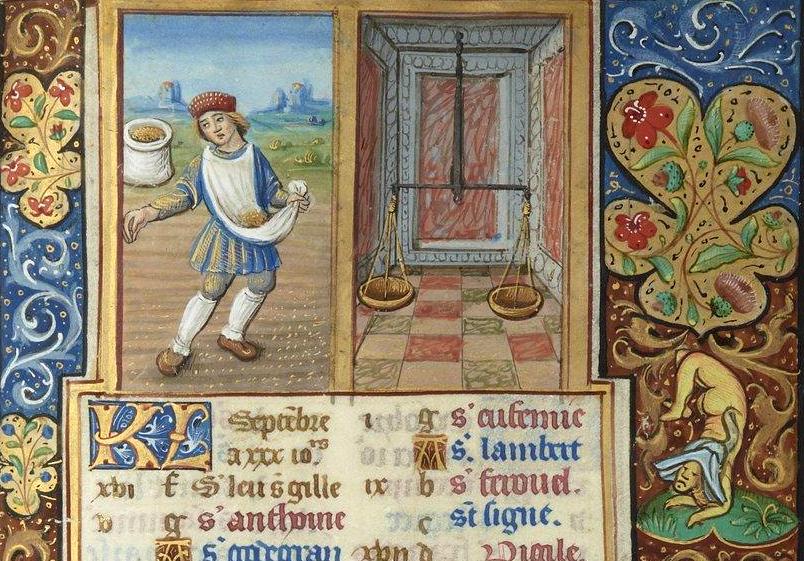 KL Septẽbre
a xxx ioʳˢ
xvi f S' leu s̃ gille
v g s' anthoine
A s' godegran
i g s' eufemie
A s. lambert
ix b s' feroiul.
c st signe.
xvii d Vigile.